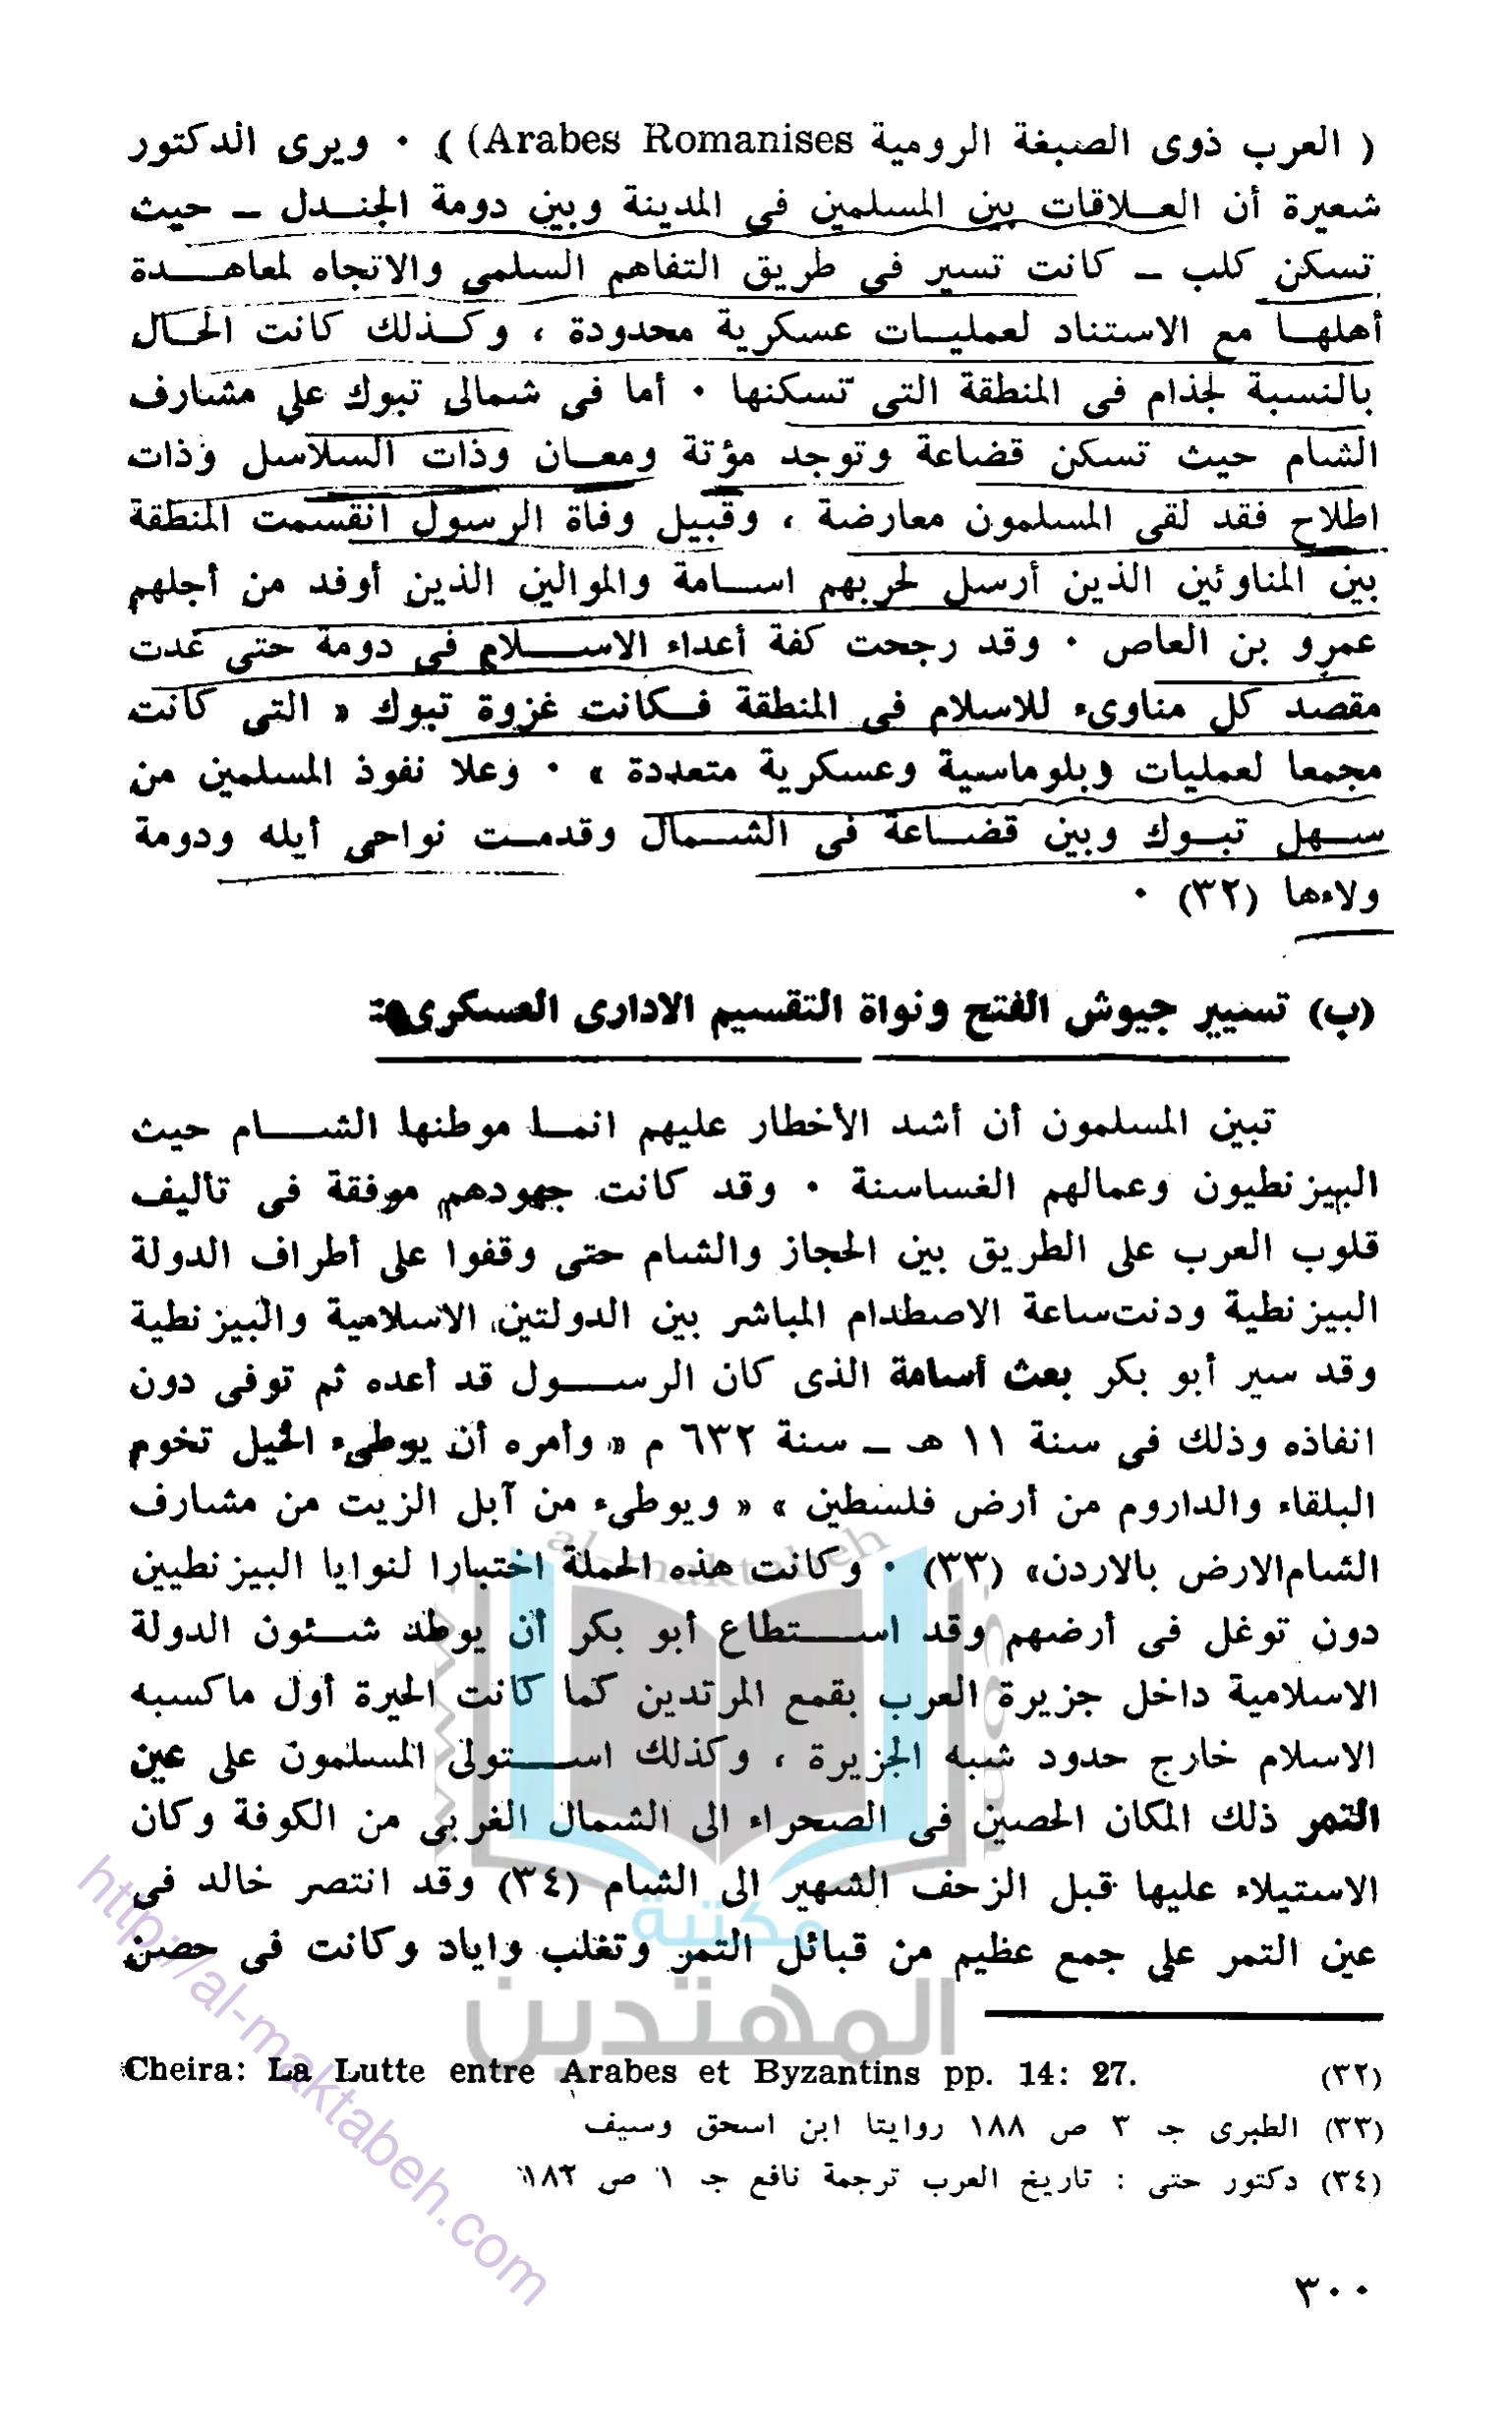 ( العرب ذوى الصبغة الرومية Arabes Romanises) ) ٠ ويرى الدكتور
شعيرة أن العلاقات بين المسلمين في المدينة وبين دومة الجندل ــ حيث
تسكن كلب ــ كانت تسير في طريق التفاهم السلمى والاتجاه لمعاهدة
أهلها مع الاستناد لعمليات عسكرية محدودة ، وكذلك كانت الحال
بالنسبة لجذام فى المنطقة التى تسكنها ٠ أما فى شمالى تبوك على مشارف
الشام حيث تسكن قضاعة وتوجد مؤتة ومعان وذات السلاسل وذات
اطلاح فقد لقى المسلمون معارضة ، وقبيل وفاة الرسول انقسمت المنطقة
بين المناوئين الذين أرسل لحربهم اسامة والموالين الذين أوفد من أجلهم
عمرو بن العاص ٠ وقد رجحت كفة أعداء الاسلام فى دومة حتى غدت
مقصد كل مناوىء للاسلام فى المنطقة فكانت غزوة تبوك « التى كانت
مجمعا لعمليات وبلوماسية وعسكرية متعددة » ٠ وعلا نفوذ المسلمين من
سهل تبوك وبين قضاعة فى الشمال وقدمت نواحى أيله ودومة
ولاءها (٣٢) ٠
(ب) تسيير جيوش الفتح ونواة التقسيم الادارى العسكرى :
تبين المسلمون أن أشد الأخطار عليهم انما موطنها الشام حيث
البيزنطيون وعمالهم الغساسنة ٠ وقد كانت جهودهم موفقة فى تأليف
قلوب العرب على الطريق بين الحجاز والشام حتى وقفوا على أطراف الدولة
البيزنطية ودنت ساعة الاصطدام المباشر بين الدولتين الاسلامية والبيزنطية
وقد سير أبو بكر بعث أسامة الذى كان الرسول قد أعده ثم توفى دون
انفاذه وذلك فى سنة ١١ هـ ــ سنة ٦٣٢ م « وأمره أن يوطىء الخيل تخوم
البلقاء والداروم من أرض فلسطين » « ويوطىء من آبل الزيت من مشارف
الشام الارض بالاردن» (٣٣) ٠ وكانت هذه الحملة اختبارا لنوايا البيزنطيين
دون توغل فى أرضهم وقد استطاع أبو بكر أن يوطد شئون الدولة
الاسلامية داخل جزيرة العرب بقمع المرتدين كما كانت الحيرة أول ماكسبه
الاسلام خارج حدود شبه الجزيرة ، وكذلك استولى المسلمون على عين
التمر ذلك المكان الحصين فى الصحراء الى الشمال الغربى من الكوفة وكان
الاستيلاء عليها قبل الزحف الشهير الى الشام (٣٤) وقد انتصر خالد فى
عين التمر على جمع عظيم من قبائل التمر وتغلب واياد وكانت فى حصن
(٣٢) Cheira: La Lutte entre Arabes et Byzantins pp. 14: 27.
(٣٣) الطبرى جـ ٣ ص ١٨٨ روايتا ابن اسحق وسيف
(٣٤) دكتور حتى : تاريخ العرب ترجمة نافع جـ ١ ص ١٨٢
٣٠٠
al-maktabeh
مكتبة
المهتدين
http://al-maktabeh.com